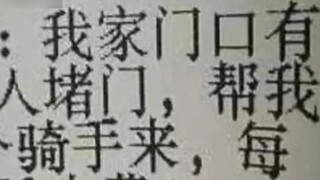 ：我家门口有
人堵门，帮我
骑手来，每